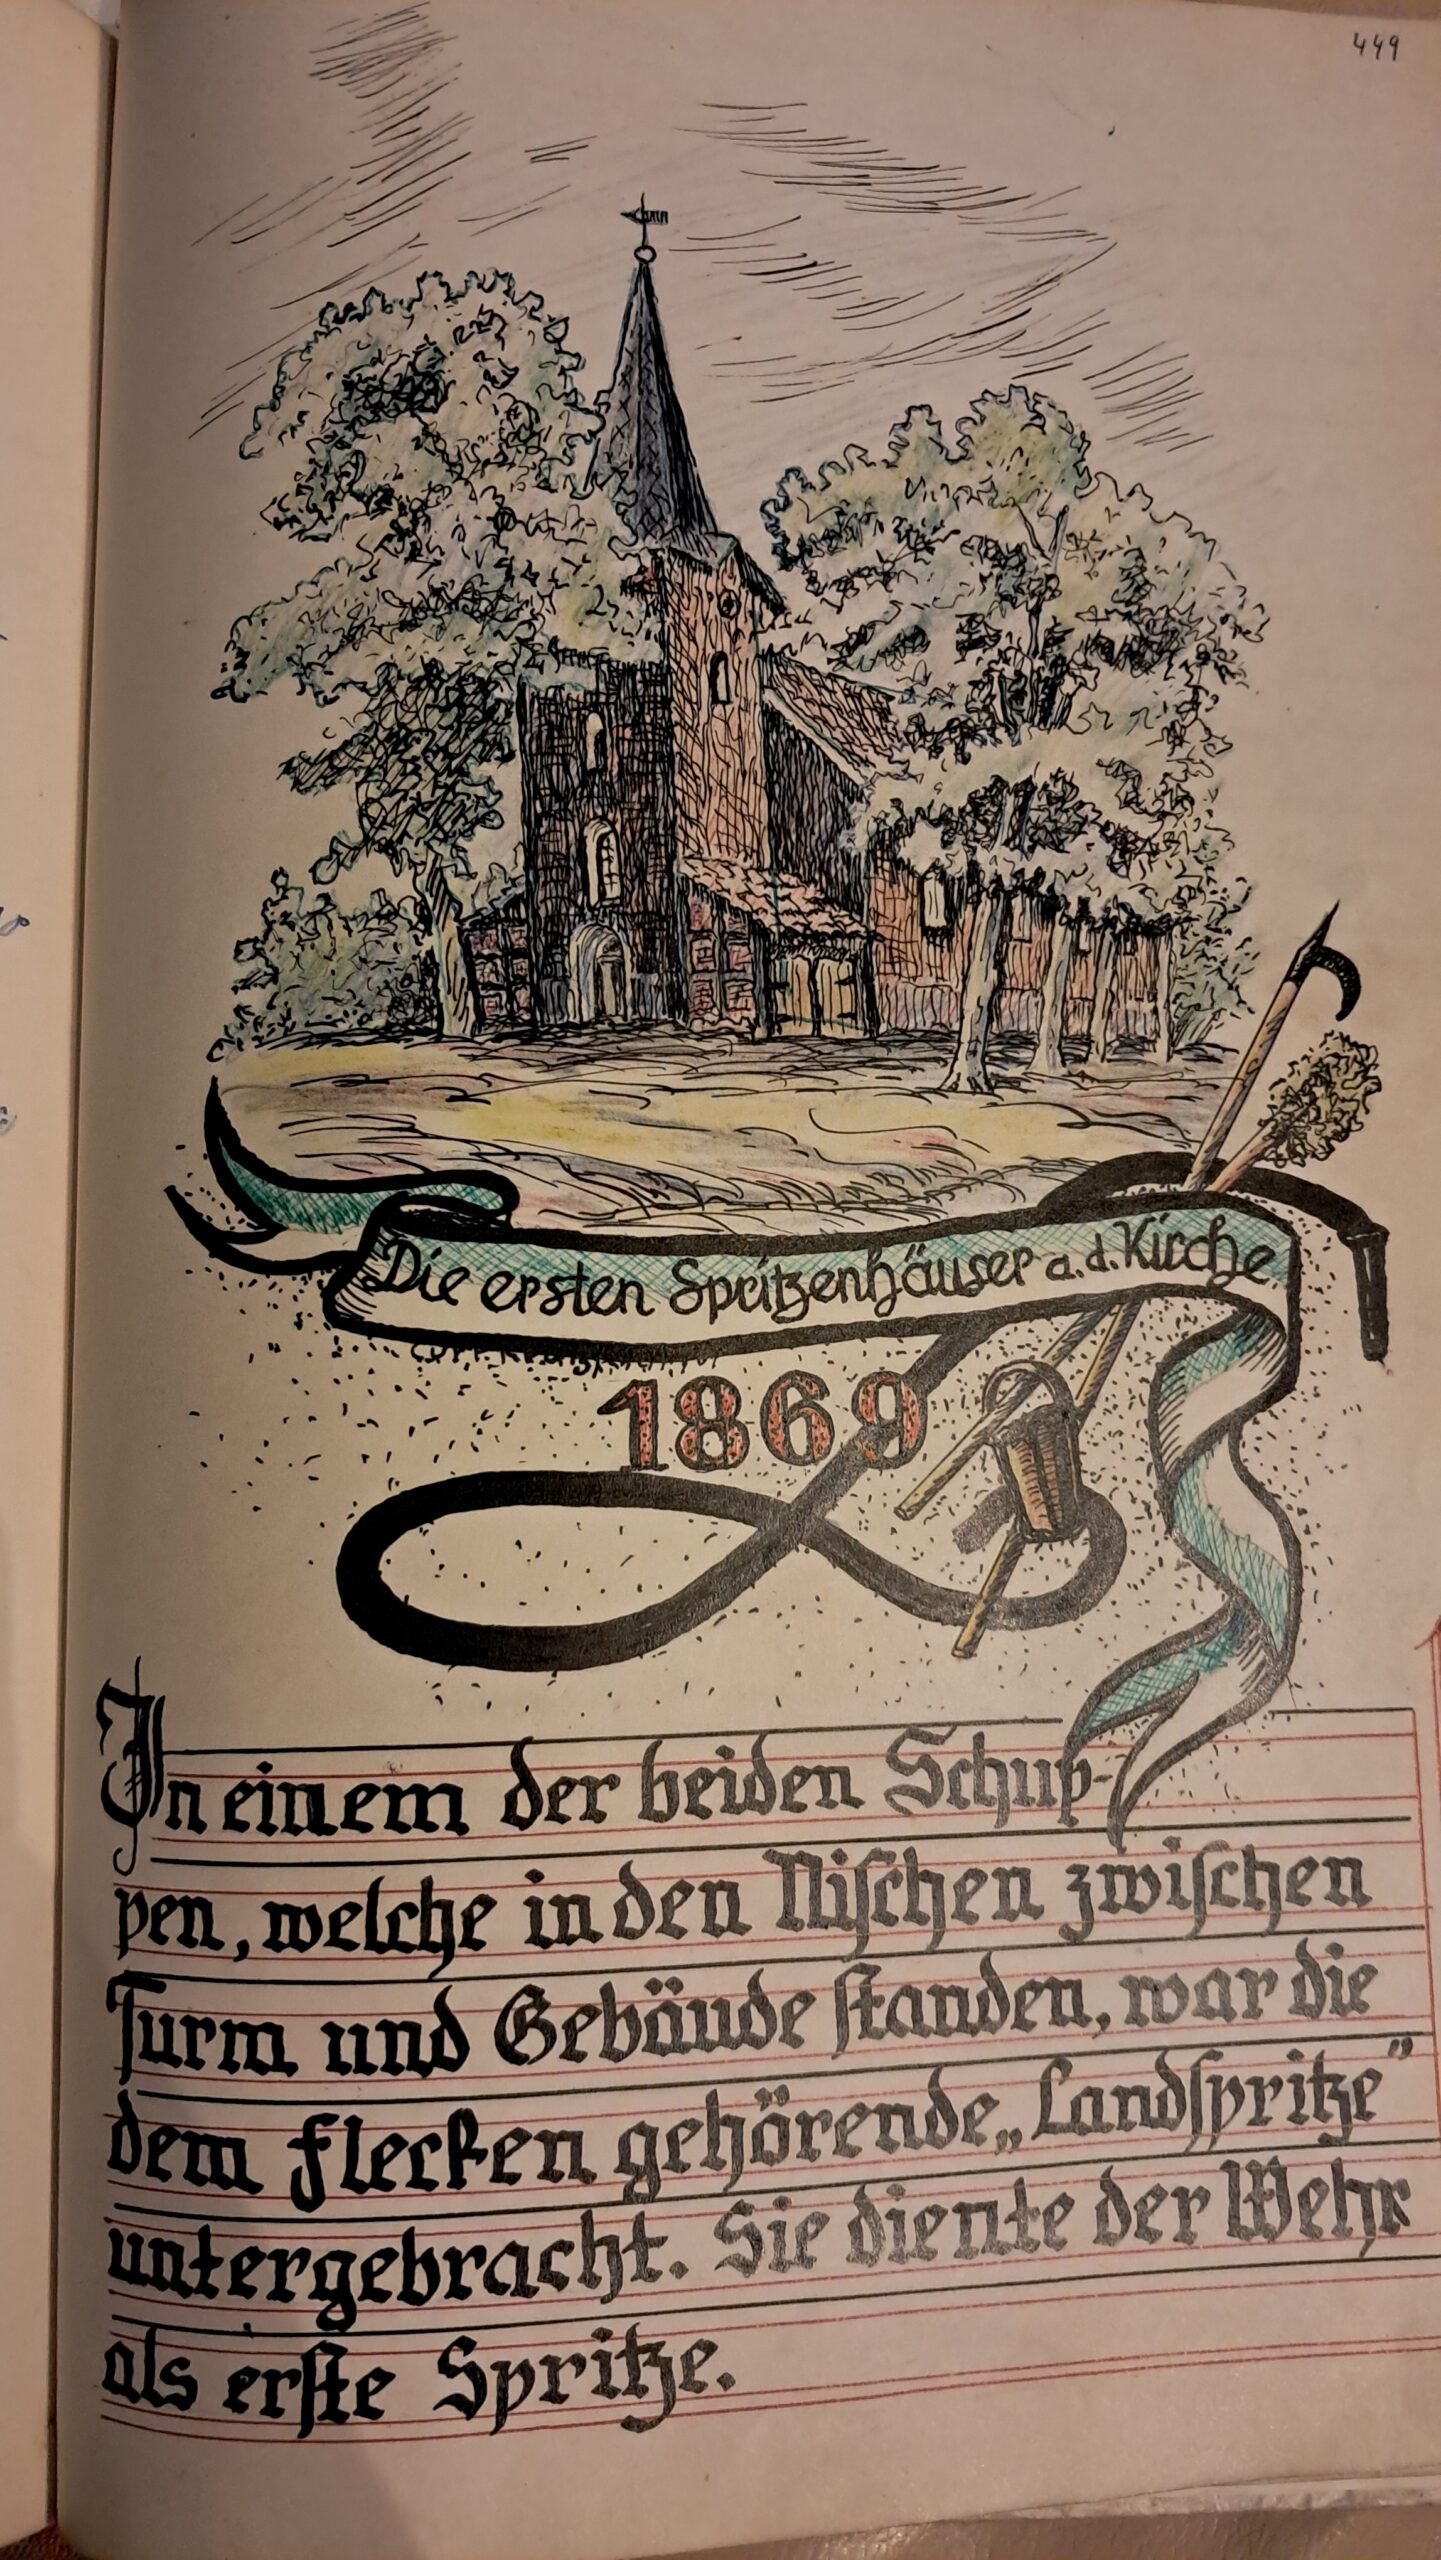 449
Die ersten Spritzenhäuser a. d. Kirche
1869
In einem der beiden Schup-
pen, welche in den Nischen zwischen
Turm und Gebäude standen, war die
dem Flecken gehörende „Landspritze"
untergebracht. Sie diente der Wehr
als erste Spritze.